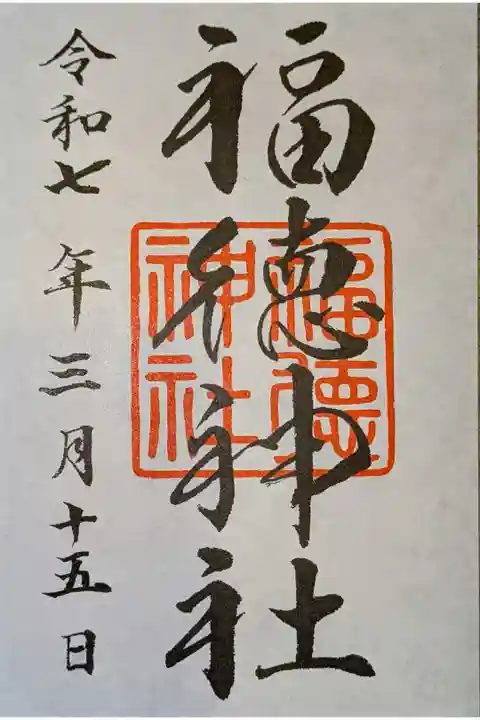 福徳神社
福徳神社
令和七年三月十五日